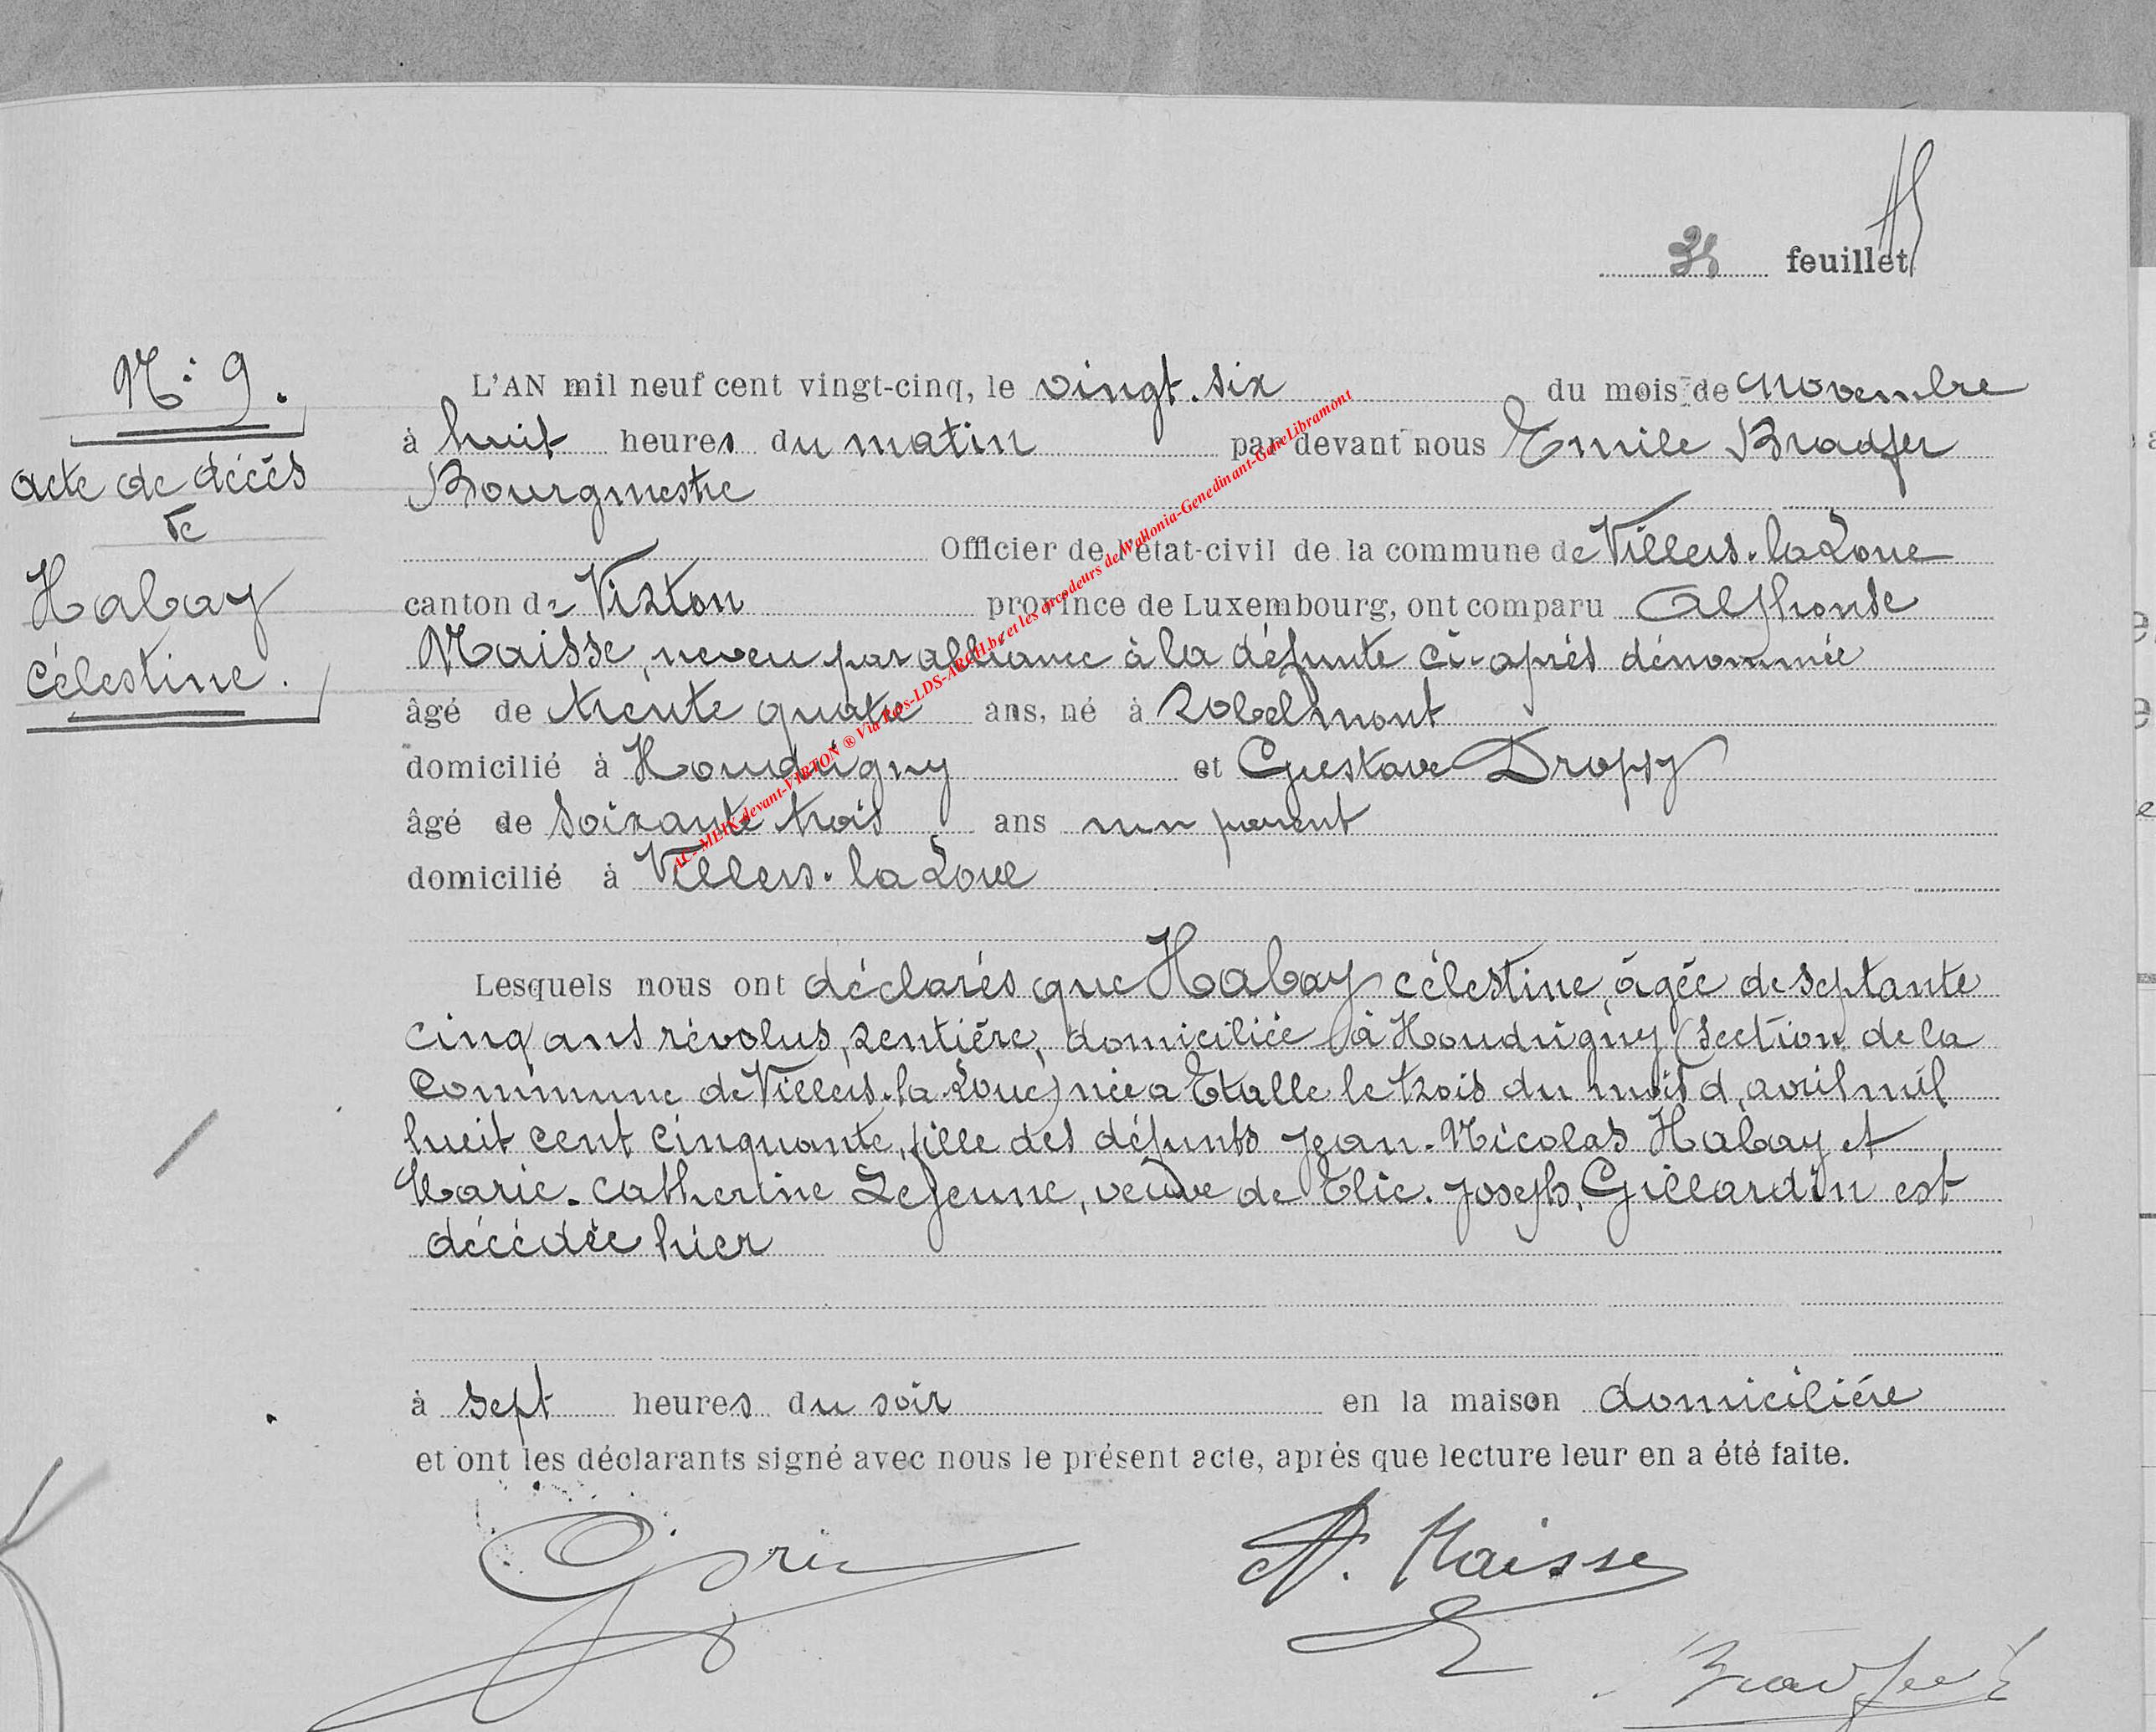 feuillet
N: 9.
acte de décès
de
Habay
Célestine.
L'AN mil neuf cent vingt-cinq, le vingt-six du mois de Novembre
à huit heures du matin par devant nous Emile Bradfer
Bourgmestre
Officier de l'état-civil de la commune de Villers-la-Loue
canton de Virton province de Luxembourg, ont comparu Alphonse
Maisse, neveu par alliance à la défunte ci-après dénommée
âgé de trente quatre ans, né à Robelmont
domicilié à Houdrigny et Gustave Dropsy
âgé de soixante trois ans non parent
domicilié à Villers-la-Loue
Lesquels nous ont déclarés que Habay Célestine, âgée de septante
cinq ans révolus, rentière, domiciliée à Houdrigny (section de la
commune de Villers-la-Loue) née a Etalle le trois du mois d'avril mil
huit cent cinquante, fille des défunts Jean-Nicolas Habay et
Marie-Catherine Lejeune, veuve de Elie-Joseph Gillardin est
décédée hier
à sept heures du soir en la maison domicilière
et ont les déclarants signé avec nous le présent acte, après que lecture leur en a été faite.
A. Maisse
Bradfer
AC- MLIK devant-VIRTON ® Via Pros-LDS-ARCH.be et les encodeurs de Wallonia-Genedinant-GeneLibramont